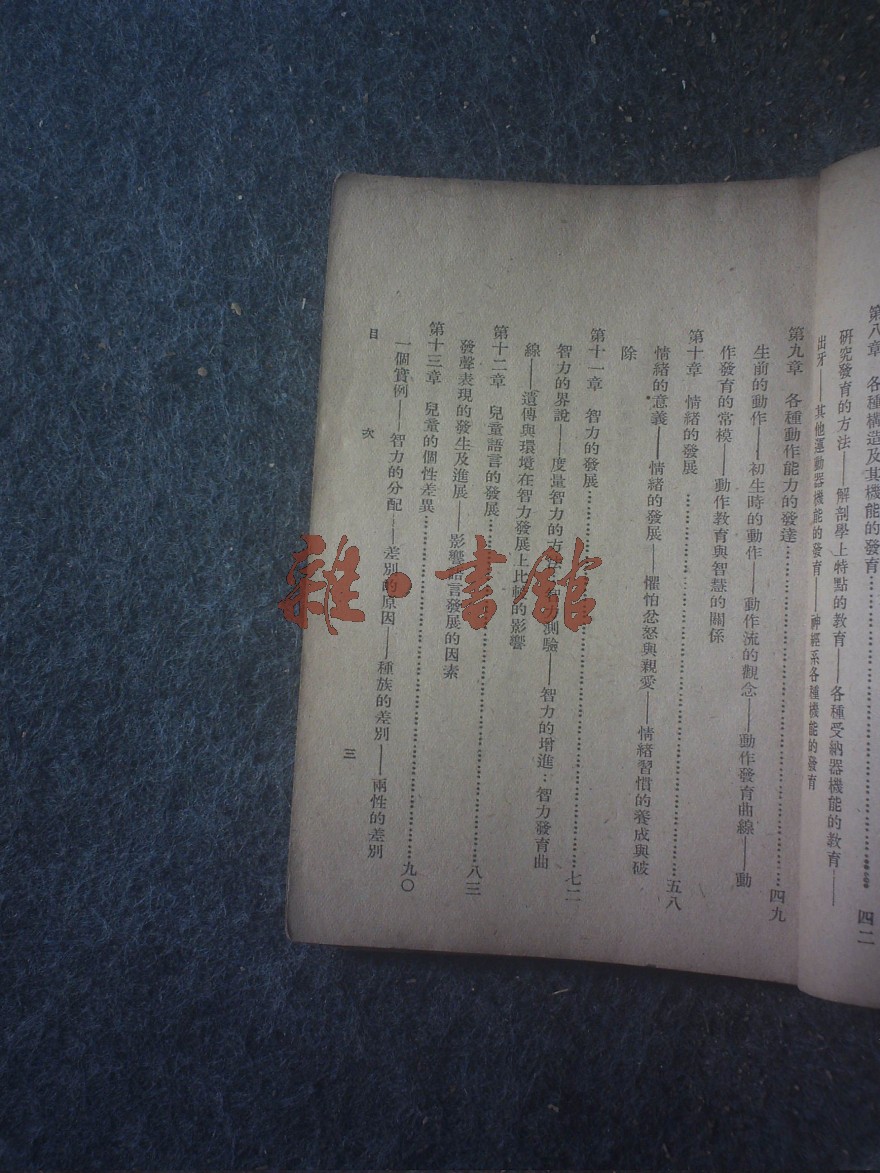 第八章　各種構造及其機能的發育…………四二
研究發育的方法——解剖學上特點的教育——各種受納器機能的教育——
出牙——其他運動器機能的發育——神經系各種機能的發育
第九章　各種動作能力的發達…………四九
生前的動作——初生時的動作——動作流的觀念——動作發育曲線——動
作發育的常模——動作教育與智慧的關係
第十章　情緒的發展…………五八
情緒的意義——情緒的發展——懼怕忿怒與親愛——情緒習慣的養成與破
除
第十一章　智力的發展…………七二
智力的界說——度量智力的方法：智力測驗——智力的增進：智力發育曲
線——遺傳與環境在智力發展上比較的影響
第十二章　兒童語言的發展…………八三
發聲表現的發生及進展——影響語言發展的因素
第十三章　兒童的個性差異…………九〇
一個實例——智力的分配——差別的原因——種族的差別——兩性的差別
目次　三
雜·書館